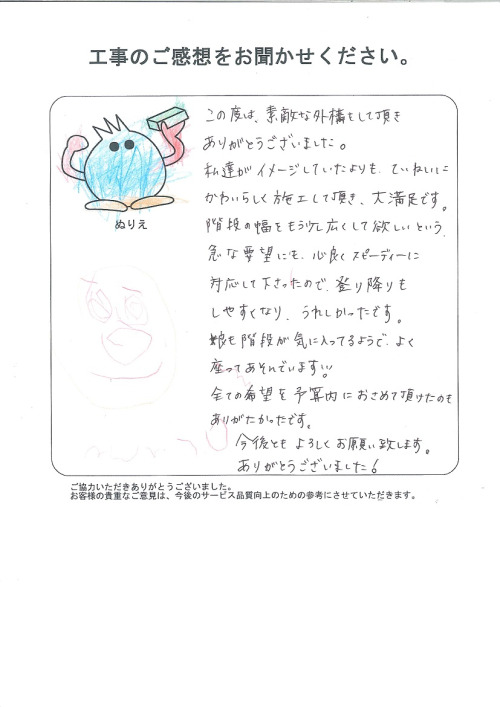 工事のご感想をお聞かせください。
この度は、素敵な外構をして頂き
ありがとうございました。
私達がイメージしていたよりも、ていねいに
かわいらしく施工して頂き、大満足です。
階段の幅をもう少し広くして欲しいという、
急な要望にも、心良くスピーディーに
対応して下さったので、登り降りも
しやすくなり、うれしかったです。
娘も階段が気に入ってるようで、よく
座ってあそんでいます!!
全ての希望を予算内におさめて頂けたのも
ありがたかったです。
今後ともよろしくお願い致します。
ありがとうございました!
ぬりえ
ご協力いただきありがとうございました。
お客様の貴重なご意見は、今後のサービス品質向上のための参考にさせていただきます。